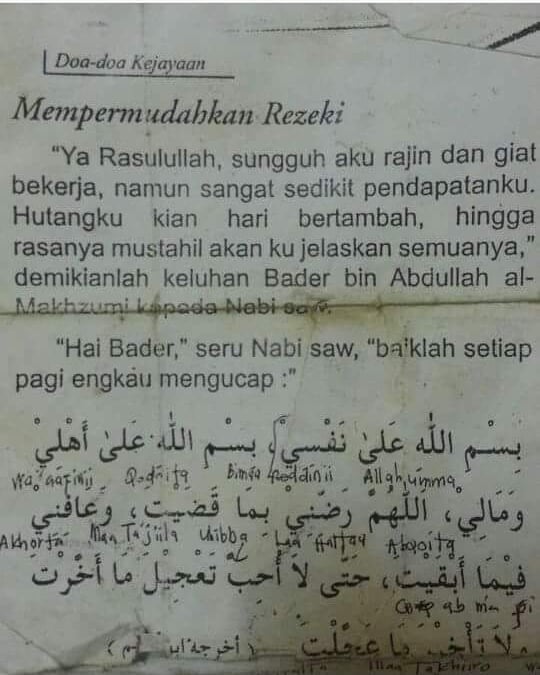 Doa-doa Kejayaan
Mempermudahkan Rezeki
"Ya Rasulullah, sungguh aku rajin dan giat
bekerja, namun sangat sedikit pendapatanku.
Hutangku kian hari bertambah, hingga
rasanya mustahil akan ku jelaskan semuanya,"
demikianlah keluhan Bader bin Abdullah al-
Makhzumi kepada Nabi saw.
"Hai Bader," seru Nabi saw, "baiklah setiap
pagi engkau mengucap :"
بِسْمِ اللَّهِ عَلَىٰ نَفْسِيْ، بِسْمِ اللَّهِ عَلَىٰ أَهْلِيْ
Wa'aafinii Qadhaita Bimaa Roddinii Allahumma
وَمَالِي، اللَّهُمَّ رَضِّنِيْ بِمَا قَضَيْتَ، وَعَافِنِي
Akhorta Maa Ta'jiila Uhibba Laa Hattaa Abqoita
فِيْمَا أَبْقَيْتَ، حَتَّى لَا أُحِبَّ تَعْجِيْلَ مَا أَخَّرْتَ
ma